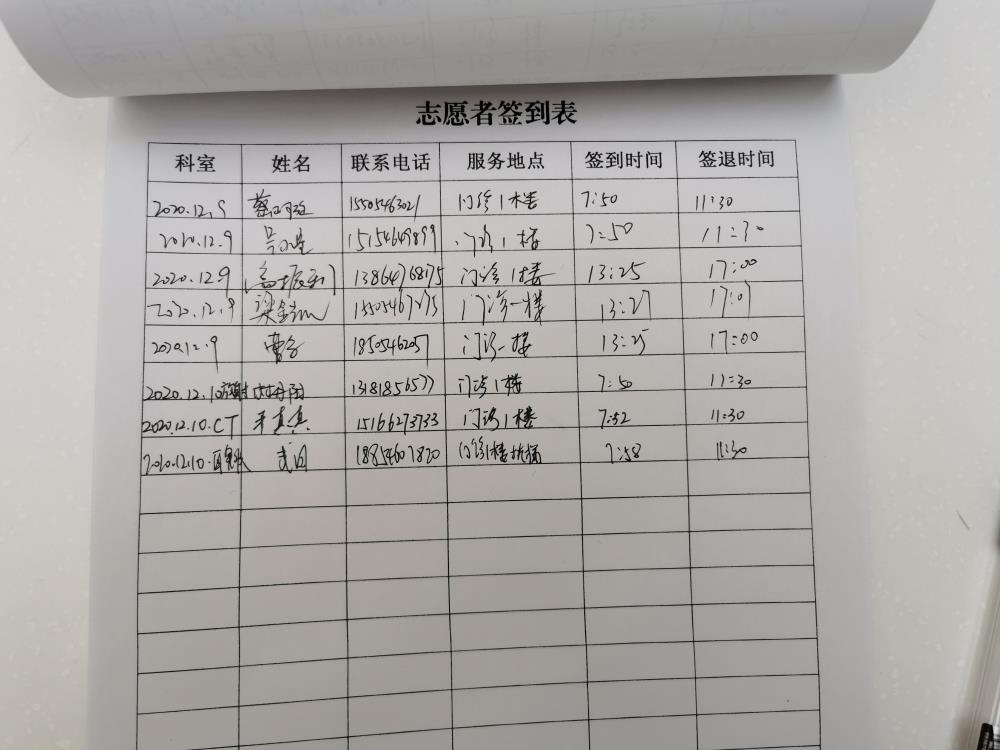 志愿者签到表
科室 姓名 联系电话 服务地点 签到时间 签退时间
2020.12.9 蔡 15505463021 门诊1楼 7:50 11:30
2020.12.9 15154649899 门诊1楼 7:50 11:30
2020.12.9 高振 13864768175 门诊1楼 13:25 17:00
2020.12.9 梁 门诊一楼 13:27 17:01
2020.12.9 曹 门诊一楼 13:25 17:00
2020.12.10 13181856577 门诊1楼 7:50 11:30
2020.12.10.CT 真真 15166273733 门诊1楼 7:52 11:30
2020.12.10. 18854607820 门诊1楼扶梯 7:58 11:30